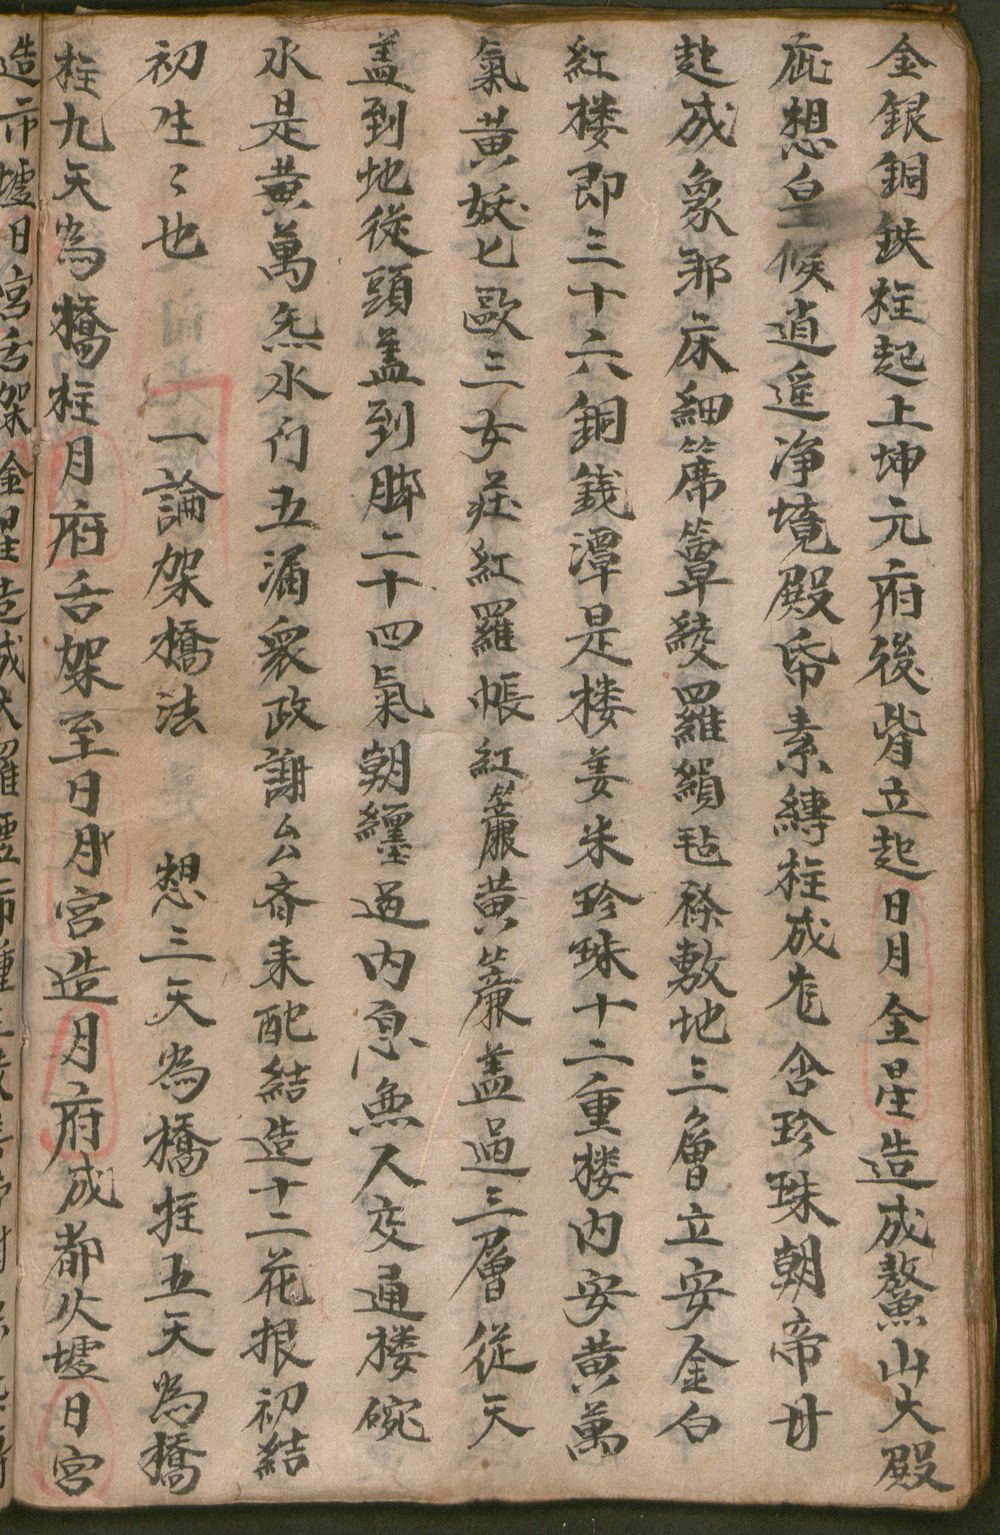 金銀銅鉄柱起上坤元府後背立起日月金星造成鰲山大殿
庇想皇候逍遥净境殿帋素縛柱成舍珍珠朝帝廿
起成象邪床細席簟綾羅縜毡襑敷地三層立安金白
紅楼即三十六銅銭潭是楼姜米珍珠十二重楼内安黄萬
氣黄妖匕歐三女莊紅羅帳紅簾黄簾盖過三層從天
盖到地從頭盖到脚二十四氣朝纏過内息無人交通楼碗
水是黄萬炁水行五漏衆政謝公斉来配結造十二花根初結
初生〻也 一論架橋法 想三天為橋柱五天為橋
柱九天為橋柱月府舌架至日月宮造月府成都大墟日宮
造市墟日宮舌架金星造成大羅